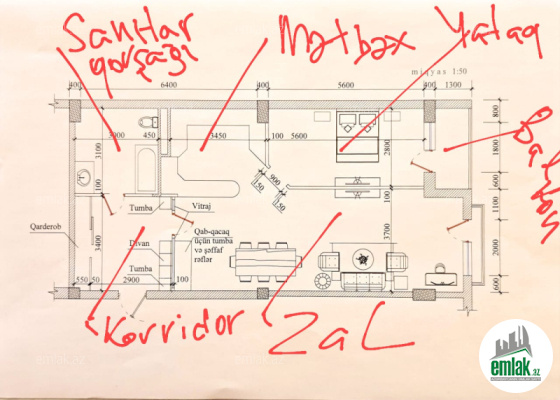 Sanitar
qovşağı
Mətbəx
Yataq
miqyas 1:50
400
6400
400
5600
400
1300
450
3450
100
5600
800
3100
2800
1800
900
150
150
600
100
100
100
Tumba
Vitraj
Qarderob
Qab-qacaq
üçün tumba
və şəffaf
rəflər
3400
Divan
3700
2000
Tumba
550
50
2900
100
600
Korridor
Zal
emlak.az